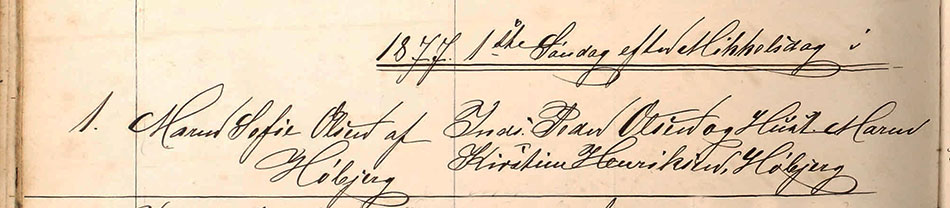 1877. 1ste Søndag efter Mikkelsdag i
1. Maren Sofie Olsen af Inds. Peder Olsen og Hust. Maren
Høbjerg Kirstine Henriksen, Høbjerg